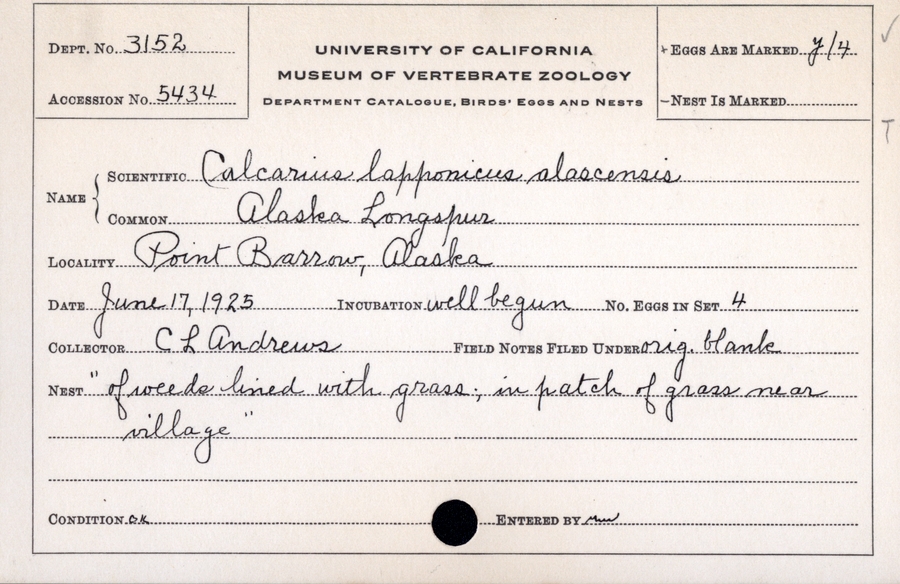 DEPT. No. 3152
ACCESSION No. 5434
UNIVERSITY OF CALIFORNIA
MUSEUM OF VERTEBRATE ZOOLOGY
DEPARTMENT CATALOGUE, BIRDS' EGGS AND NESTS
EGGS ARE MARKED y/4
NEST IS MARKED
T
NAME
SCIENTIFIC Calcarius lapponicus alascensis
COMMON Alaska Longspur
LOCALITY Point Barrow, Alaska
DATE June 17, 1925 INCUBATION well begun No. EGGS IN SET 4
COLLECTOR C L Andrews FIELD NOTES FILED UNDER orig. blank
NEST "of weeds lined with grass; in patch of grass near
village"
CONDITION OK ENTERED BY